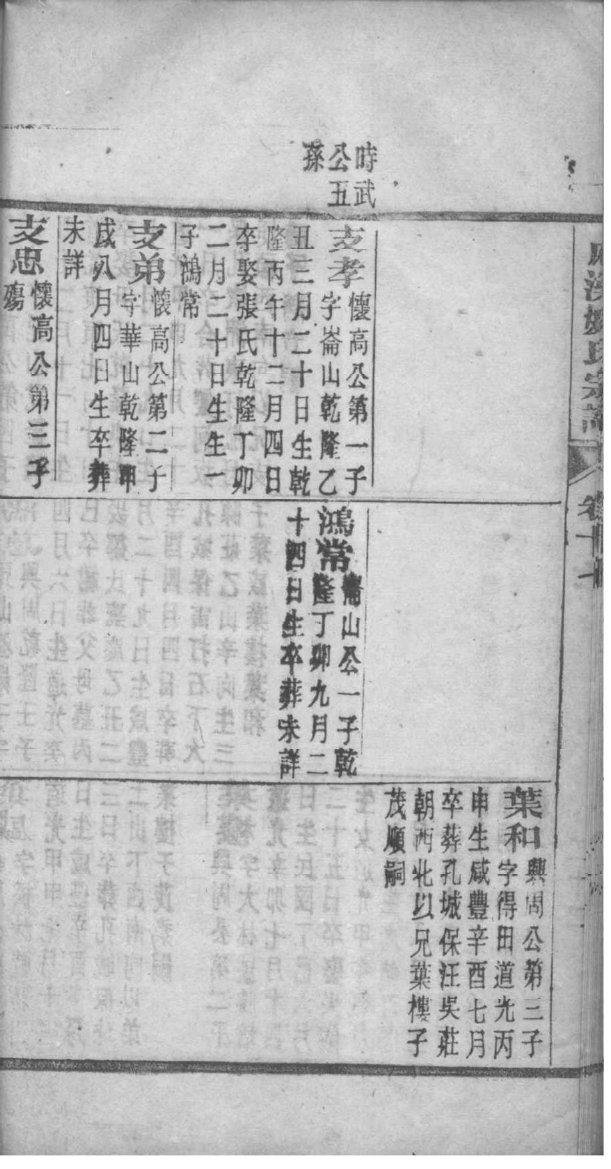 時武
公五
孫
支孝
懷高公第一子
字崙山乾隆乙
丑三月二十日生乾
隆丙午十二月四日
卒娶張氏乾隆丁卯
二月二十日生生一
子鴻常
支弟
懷高公第二子
字華山乾隆甲
戌八月四日生卒葬
未詳
支忠
懷高公第三子
殤
鴻常
崙山公一子乾
隆丁卯九月二
十四日生卒葬未詳
葉和
興周公第三子
字得田道光丙
申生咸豐辛酉七月
卒葬孔城保汪吳莊
朝西北以兄葉樓子
茂順嗣
氏宗譜
卷十